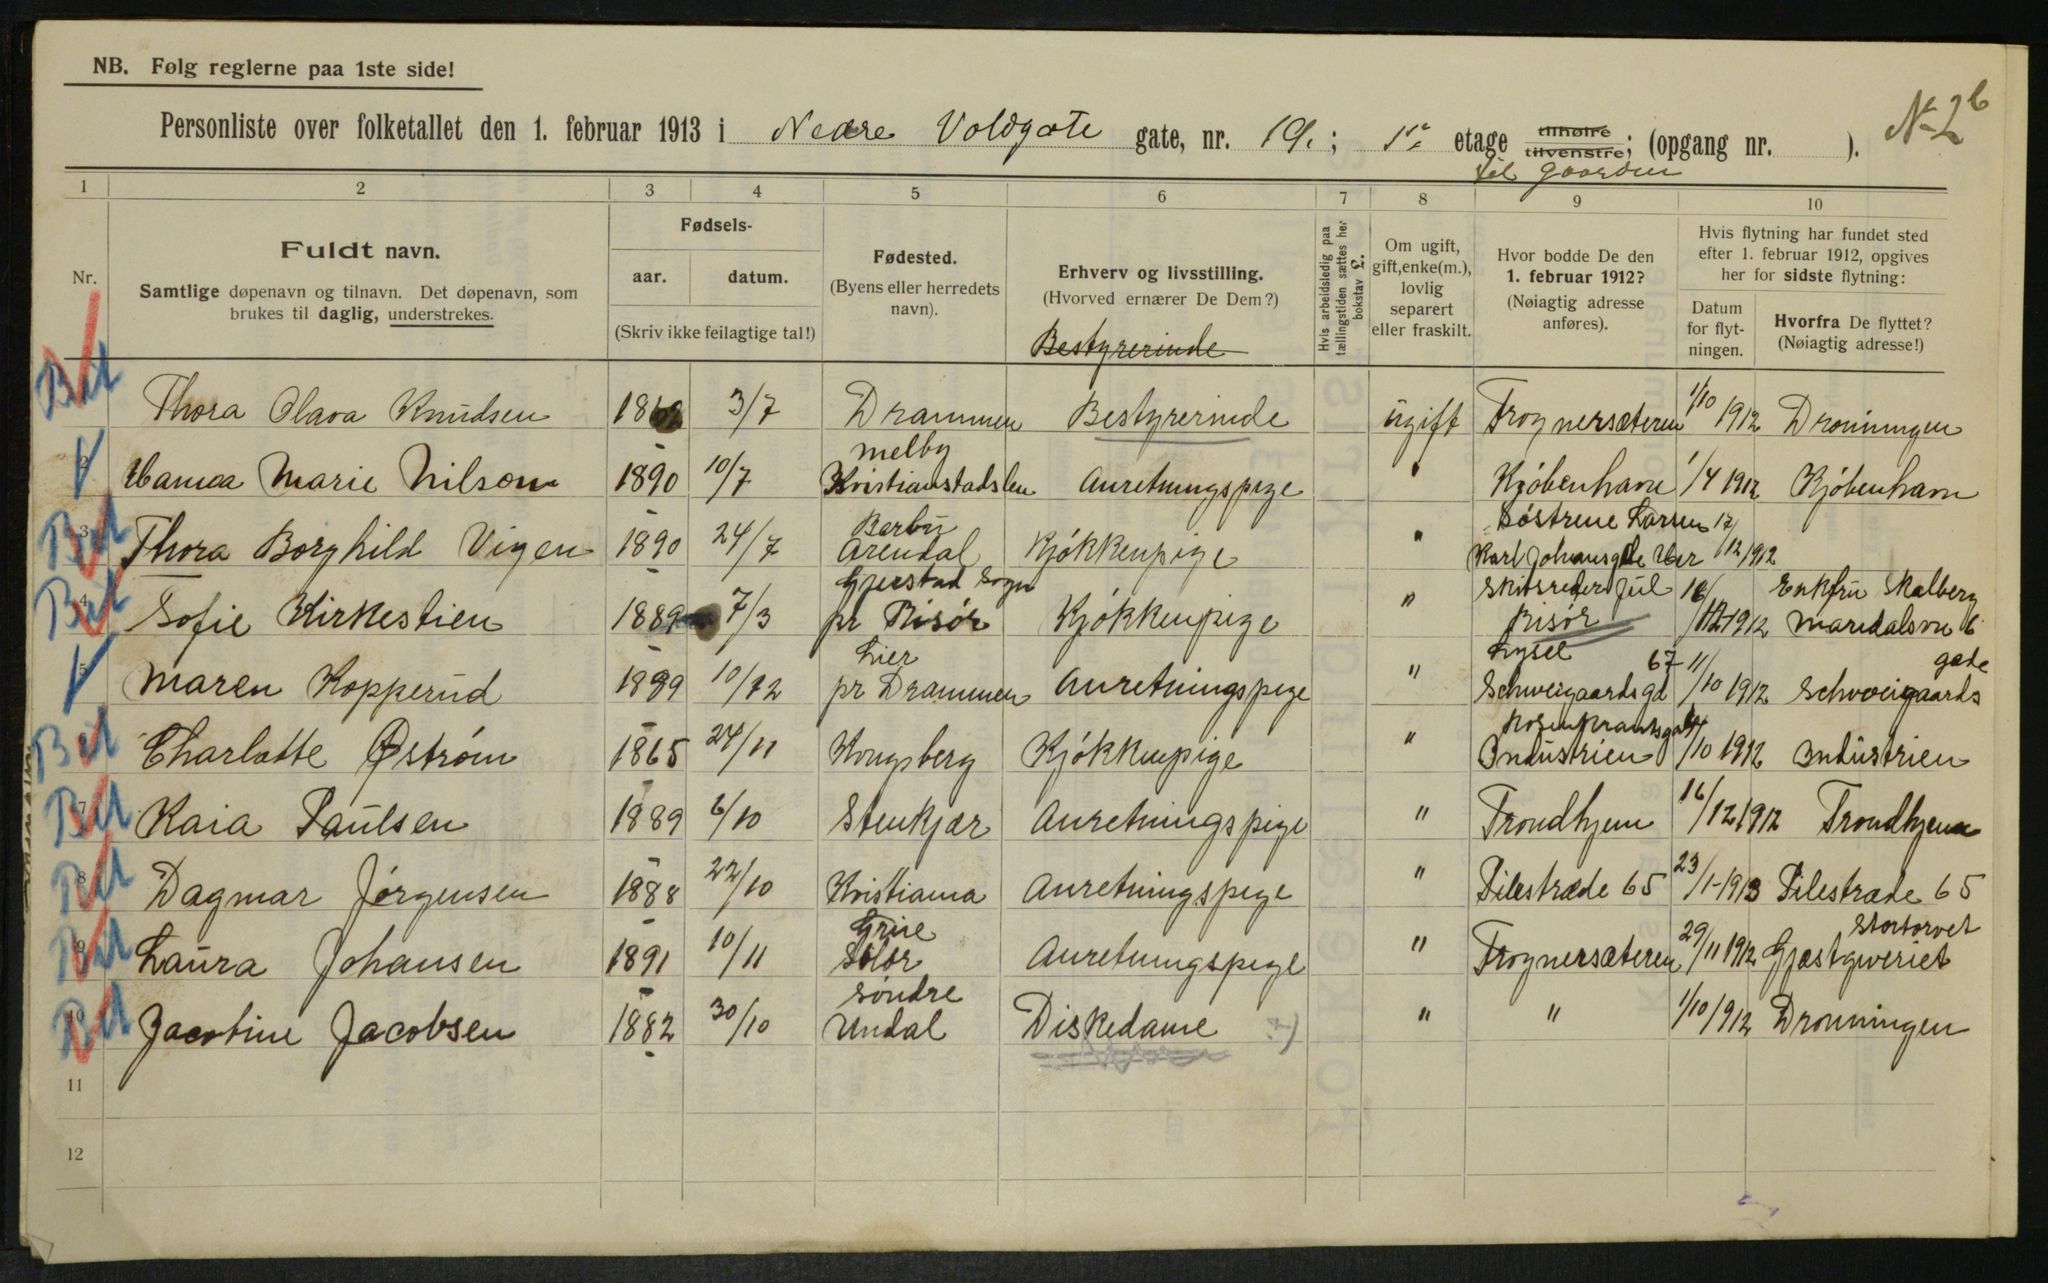 NB. Følg reglerne paa 1ste side!
N-26
Personliste over folketallet den 1. februar 1913 i Nedre Voldgate gate, nr. 19.; 1ste etage tilhøire tilvenstre; (opgang nr. ).
til Gaarden
1 2 3 4 5 6 7 8 9 10
Nr.
Fuldt navn.
Samtlige døpenavn og tilnavn. Det døpenavn, som
brukes til daglig, understrekes.
Fødsels-
aar. datum.
(Skriv ikke feilagtige tal!)
Fødested.
(Byens eller herredets
navn).
Erhverv og livsstilling.
(Hvorved ernærer De Dem?)
Bestyrerinde
Hvis arbeidsledig paa
tællingstiden sættes her
bokstav L.
Om ugift,
gift, enke(m.),
lovlig
separert
eller fraskilt.
Hvor bodde De den
1. februar 1912?
(Nøiagtig adresse
anføres).
Hvis flytning har fundet sted
efter 1. februar 1912, opgives
her for sidste flytning:
Datum
for flyt-
ningen.
Hvorfra De flyttet?
(Nøiagtig adresse!)
Bet Thora Olava Knudsen 1862 3/7 Drammen Bestyrerinde ugift Frognersæteren 1/10 1912 Dronningen
melby
2 Hanna Marie Nilson 1890 10/7 Kristianstadslen Anretningspige " Kjøbenhavn 1/4 1912 Kjøbenhavn
Barbu Søstrene Larsen 17/
3 Bet Thora Borghild Vigen 1890 24/7 Arendal Kjøkkenpige " Karl Johansgde 12 1912
Gjerstad Sogn Skibsreder Juel 16/ Enkfru Skalberg
4 Bet Sofie Kirkestien 1889 7/3 pr Risør Kjøkkenpige " Risør 12 1912 Maridalsvn 6
Lier Lysel 67 11/ gade
5 Maren Kopperud 1889 10/12 pr Drammen Anretningspige " Schweigaardsgd 10 1912 Schweigaards
Rosenkrantsgd
Bet Charlotte Østrøm 1865 24/11 Kongsberg Kjøkkenpige " Industrien /10 1912 Industrien
7 Bet Kaia Paulsen 1889 6/10 Stenkjær Anretningspige " Trondhjem 16/12 1912 Trondhjem
8 Bet Dagmar Jørgensen 1888 22/10 Kristiania Anretningspige " Pilestræde 65 23/1-1913 Pilestræde 65
Grue Stortorvet
9 Bet Laura Johansen 1891 10/11 Solør Anretningspige " Frognersæteren 29/11 1912 Gjæstgiveriet
Søndre
10 Bet Jacobine Jacobsen 1882 30/10 Undal Diskedame " " 1/10 1912 Dronningen
11
12